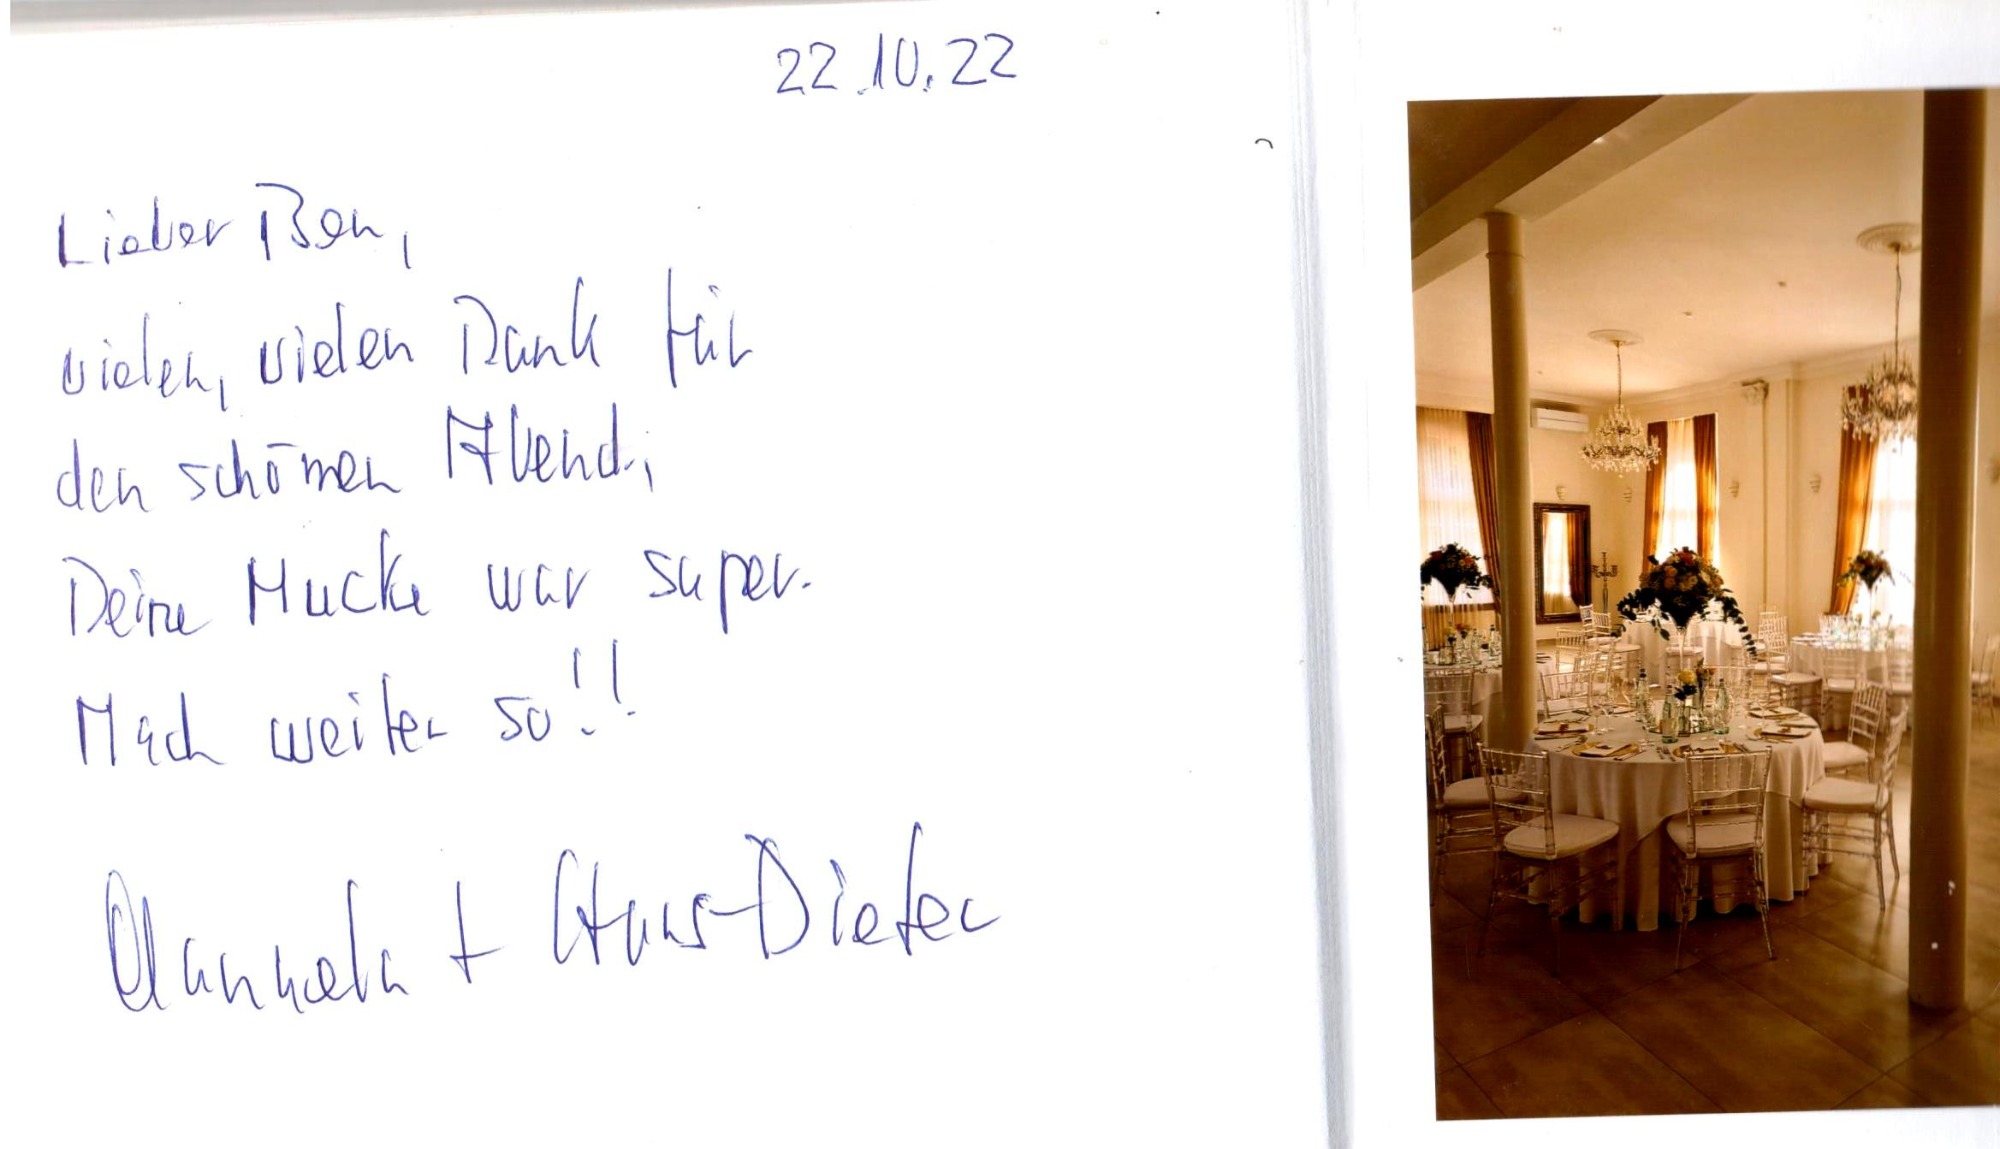 22.10.22
Lieber Ben,
vielen, vielen Dank für
den schönen Abend,
Deine Mucke war super.
Mach weiter so!!
+ Hans-Dieter